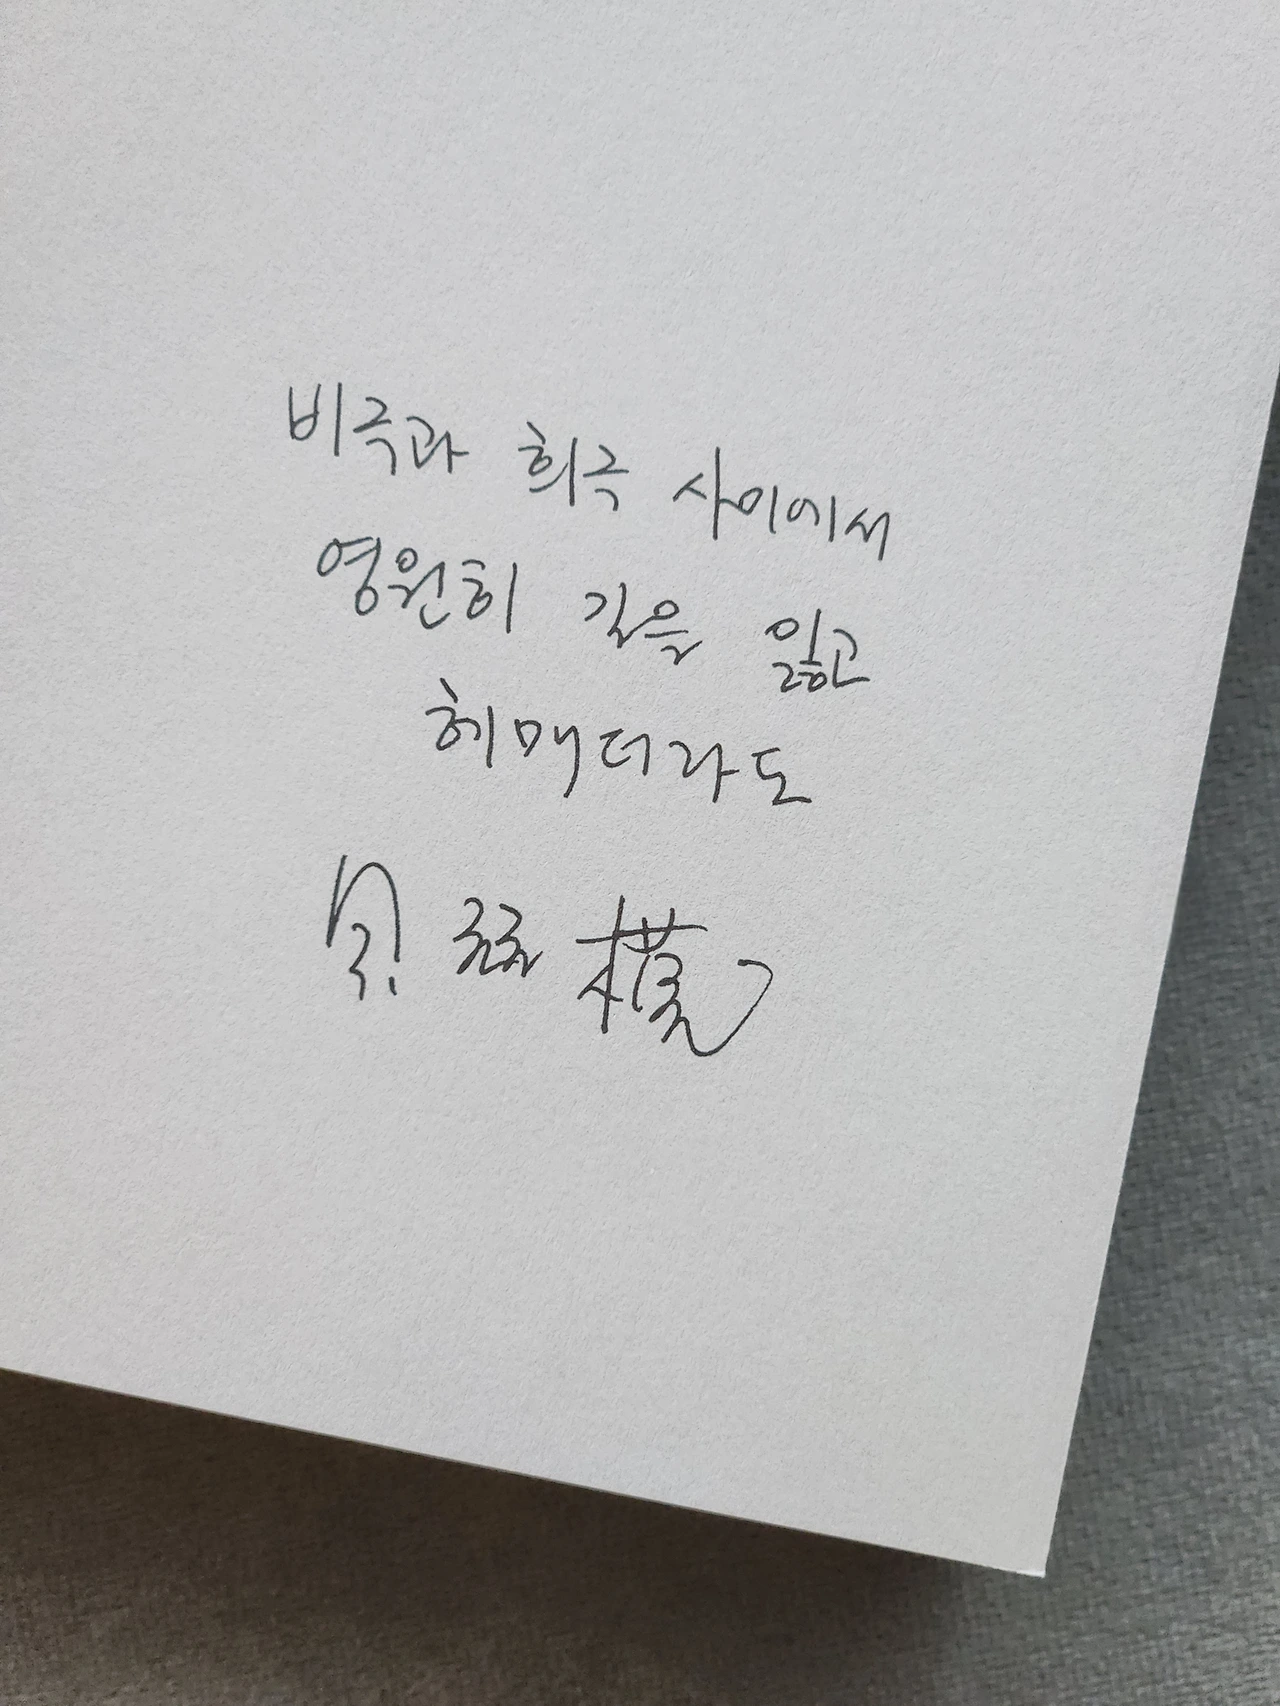 비극과 희극 사이에서
영원히 길을 잃고
헤매더라도
模